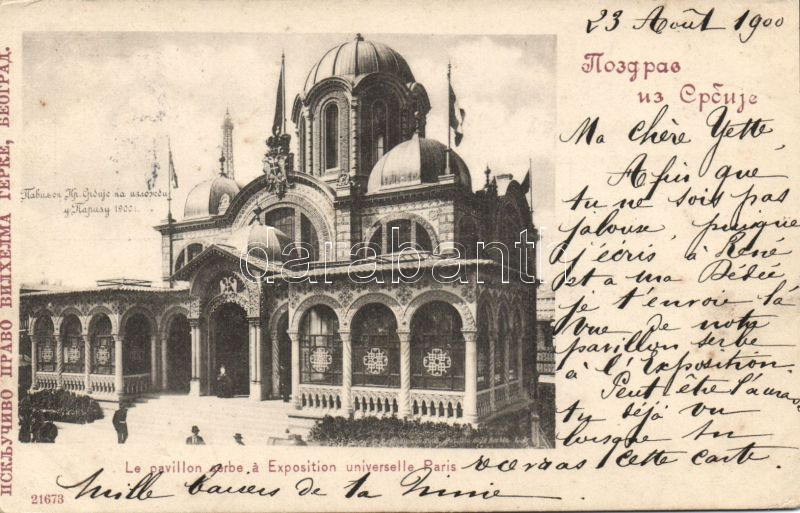 23 Août 1900
Поздрав
из Србије
Ma chère Yette,
Afin que
tu ne sois pas
jalouse, puisque
j'écris à René
et a ma Dédée
je t'envoie la
vue de notre
pavillon serbe
à l'Exposition.
Peut être l'auras
tu déjà vu
lorsque tu
recevras cette carte.
Mille baisers de ta Mimie
Павиљон Кр. Србије на изложби
у Паризу 1900 г.
Le pavillon serbe, à Exposition universelle Paris
21673
ИСКЉУЧИВО ПРАВО ВИЛХЕЛМА ГЕРКЕ, БЕОГРАД.
darabanth